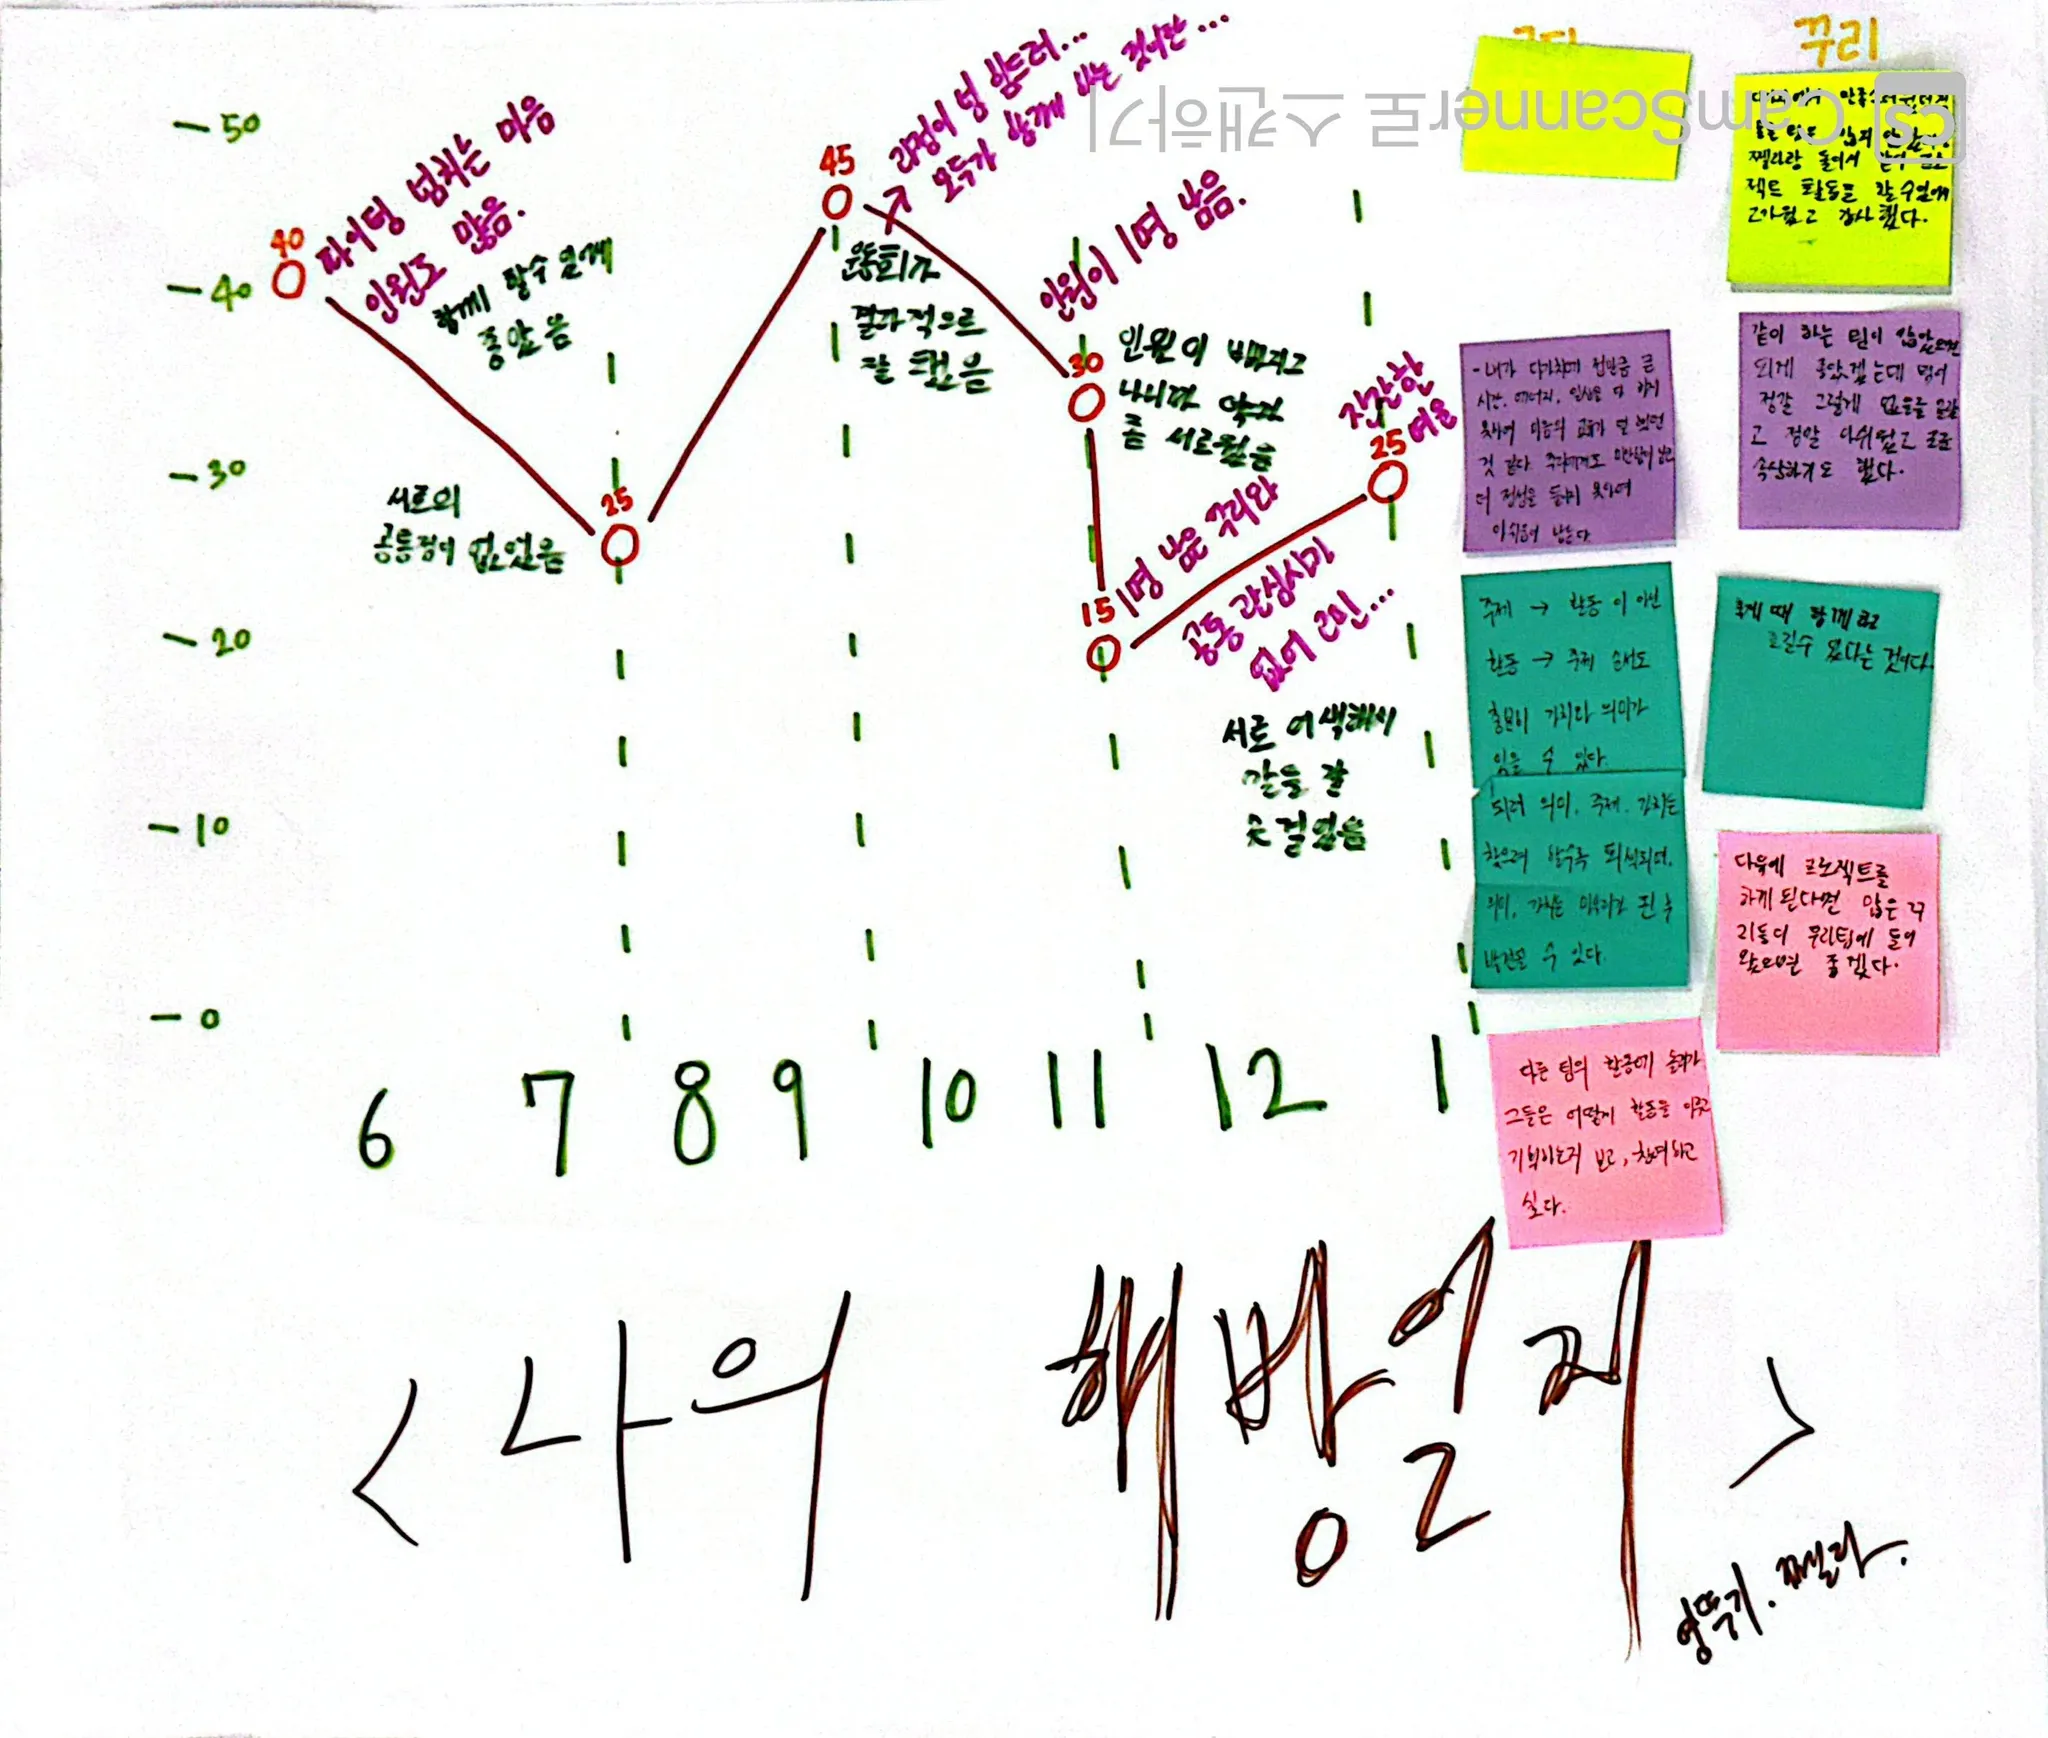 50
40
30
20
10
0
40
파이팅 넘치는 마음
인원도 많음.
함께 할수 있는게
좋았음
서로의
공통점이 없었음
25
45
과정이 넘 힘드러...
모두가 함께 하는 것이란...
운동회가
결과적으로
잘 됐음
인원이 1명 남음.
30
인원이 빠지고
나니까 약간
좀 서로웠음
15
1명 남은 꾸리와
공통 관심사가
없어 고민...
서로 어색해서
말을 잘
못 걸었음
25
진간한
여운
6 7 8 9 10 11 12 1
꾸리
쩰라랑 둘이서
젝트 활동을 할 수 있는게
고마웠고 감사했다.
- 내가
시간, 에너지, 일상을 다 하지
못하여 마음의
것 같다.
더 정성을 들이지 못하여
아쉬움이 남는다
같이 하는 팀이 많았으면
되게 좋았겠는데 팀이
정말 그렇게 없음을
고 정말 아쉬웠고 조금
속상하기도 했다.
주제 → 활동 이 아닌
활동 → 주제 순서도
충분히 가치와 의미가
있을 수 있다.
되려 의미, 주제, 가치는
찾으려 할수록 퇴색되며,
의미, 가치는 마무리가 된 후
발견될 수 있다.
함께 하고
즐길수 있다는 것이다.
다음에 프로젝트를
하게 된다면 많은 꾸
리들이 우리팀에 들어
왔으면 좋겠다.
다른 팀의 활동에 놀러가
그들은 어떻게 활동을
보고, 참여하고
싶다.
<나의 해방일지>
엉뚱기. 쩰라.
CamScanner로 스캔하기
CS